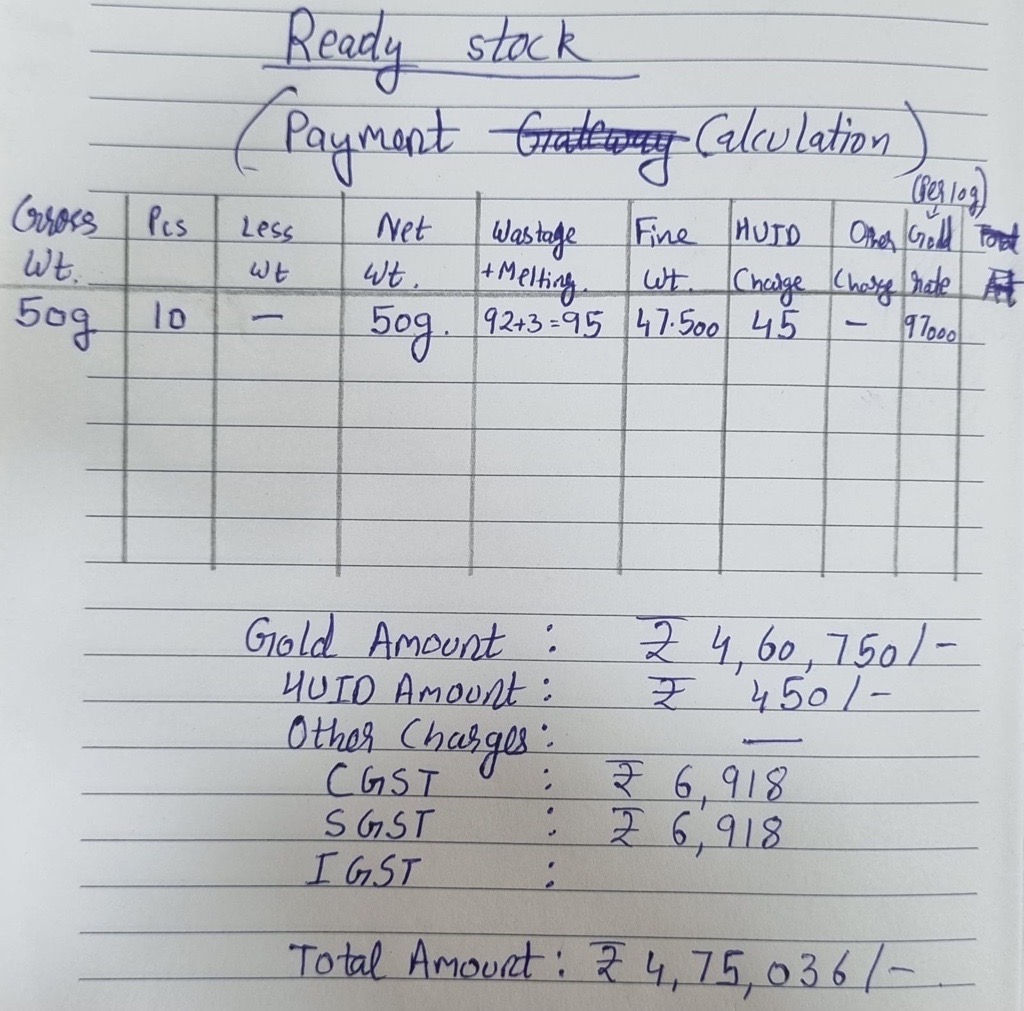 Ready stock
(Payment Gateway Calculation)
(Per 10g)
Gross Pcs Less Net Wastage Fine HUID Other Gold
Wt. Wt Wt. +Melting. Wt. Charge Charge rate
50g 10 – 50g. 92+3=95 47.500 45 – 97000
Gold Amount : ₹ 4,60,750/-
HUID Amount : ₹ 450/-
Other Charges : —
CGST : ₹ 6,918
SGST : ₹ 6,918
IGST :
Total Amount : ₹ 4,75,036/-